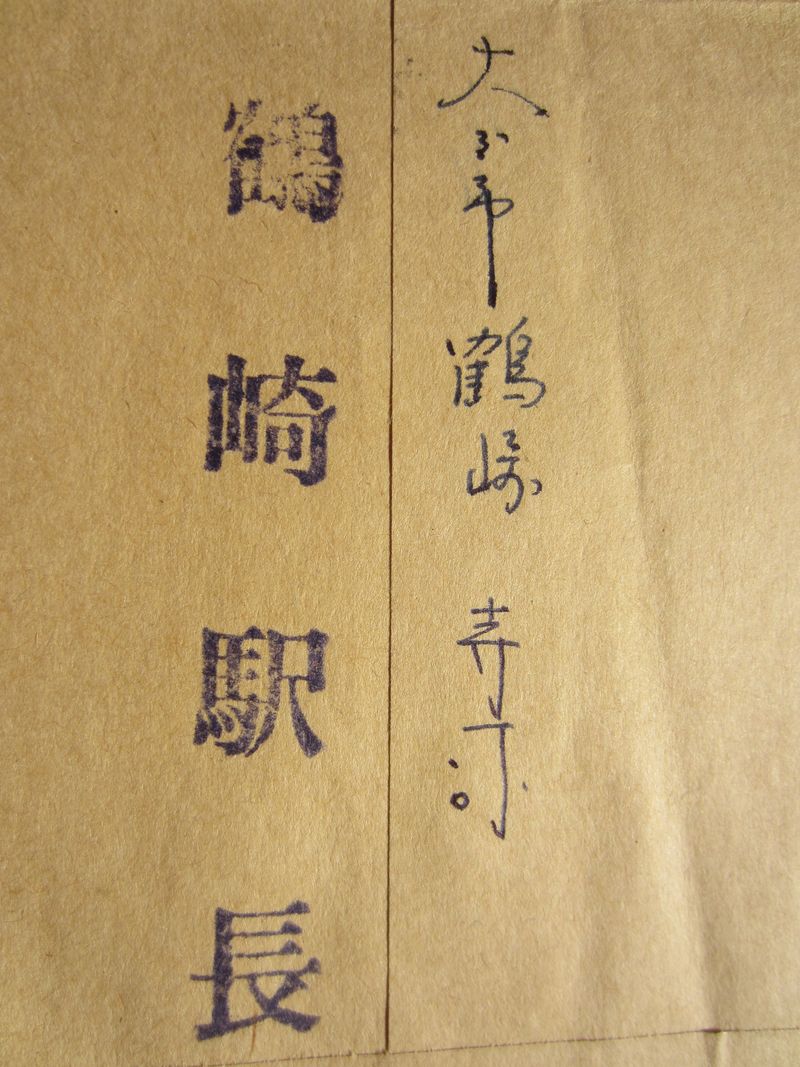 大分市鶴崎 寺司
鶴崎駅長